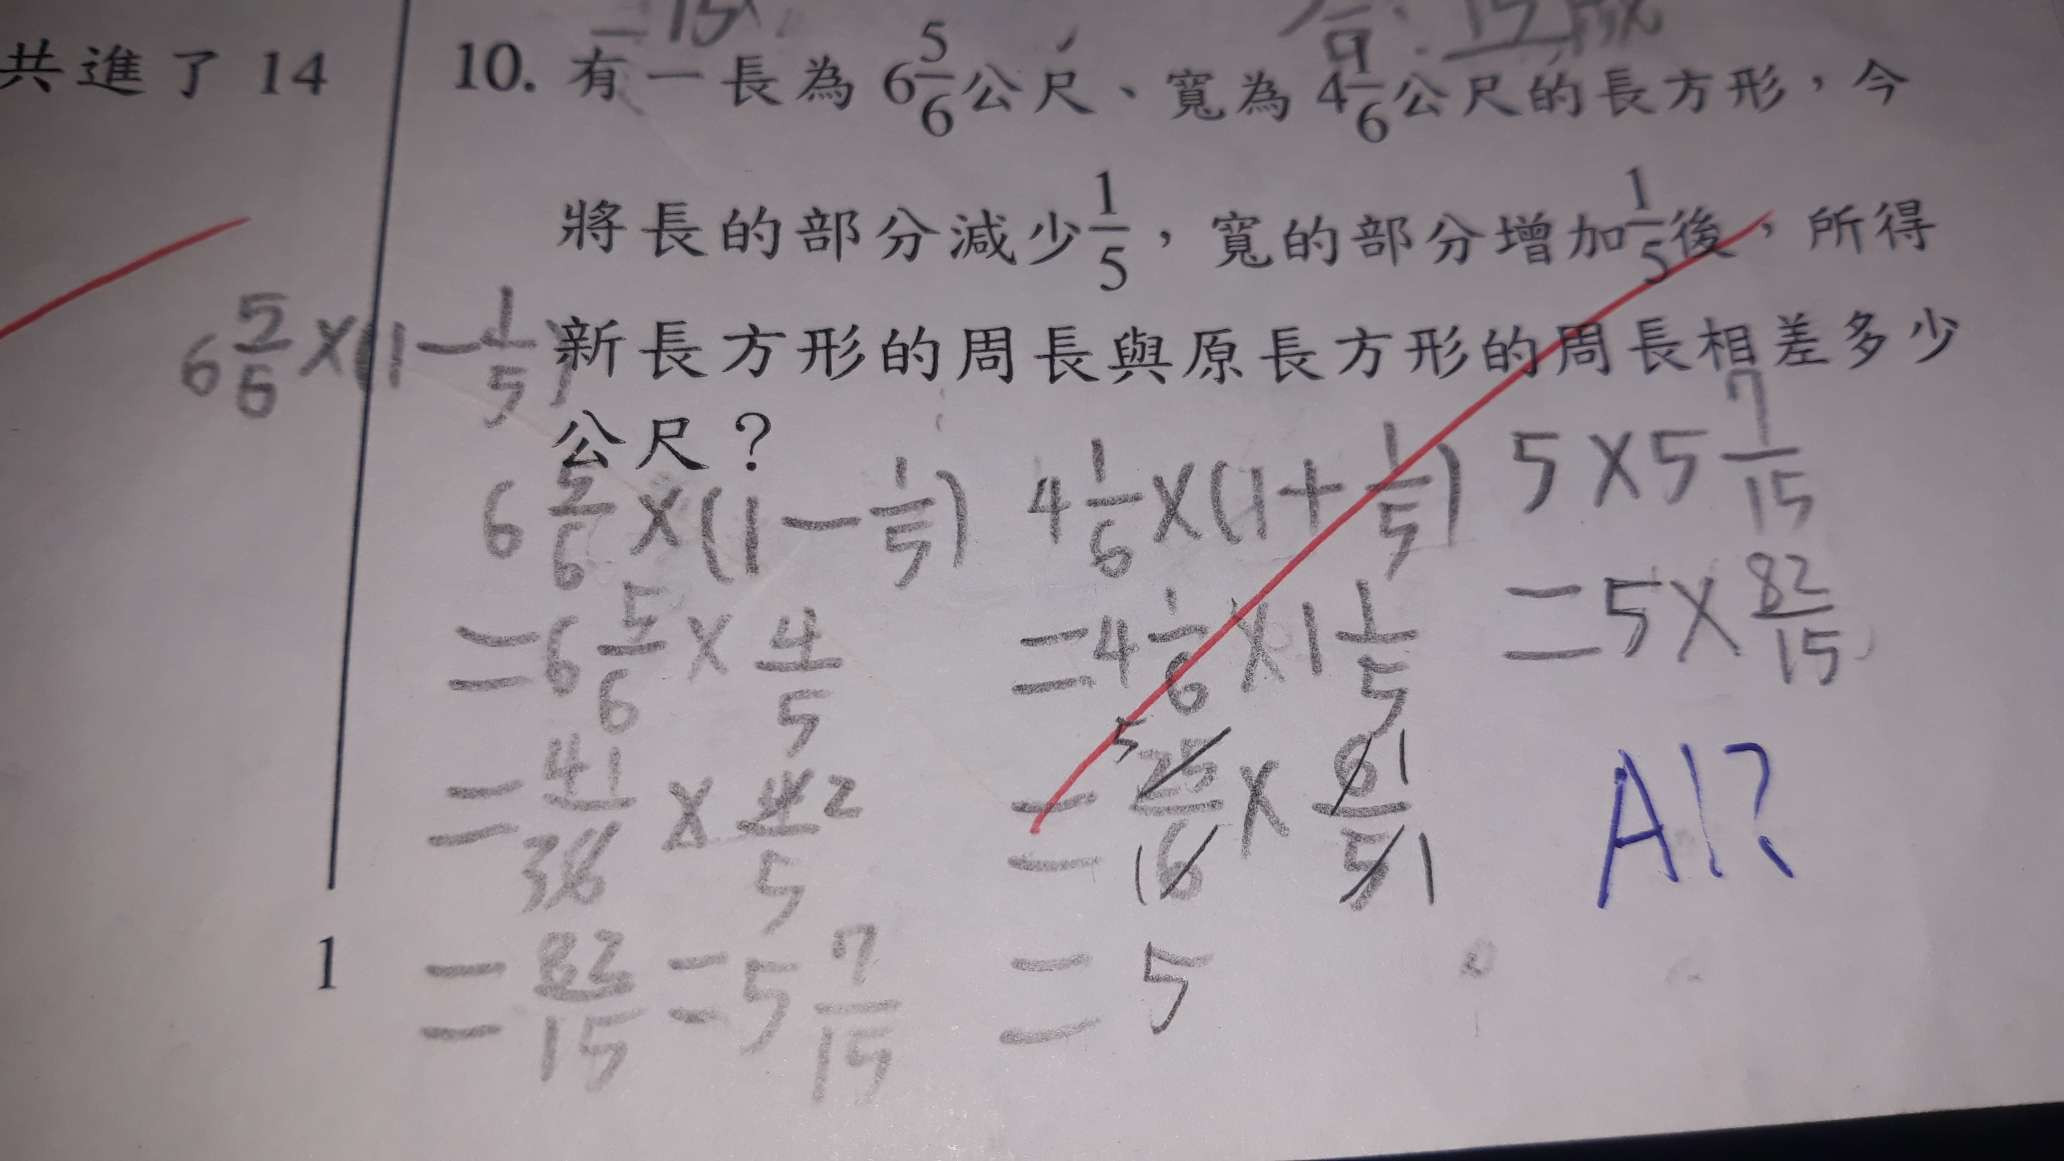 共進了 14
10. 有一長為 6 5/6 公尺、寬為 4 1/6 公尺的長方形，今
將長的部分減少 1/5，寬的部分增加 1/5 後，所得
新長方形的周長與原長方形的周長相差多少
公尺？
6 5/6 × (1 - 1/5)
6 5/6 × (1 - 1/5)
= 6 5/6 × 4/5
= 41/36 × 4/5 2
= 82/15 = 5 7/15
4 1/6 × (1 + 1/5)
= 4 1/6 × 1 1/5
= 5 25/6 1 × 6/5 1 1
= 5
5 × 5 7/15
= 5 × 82/15
A!?
1